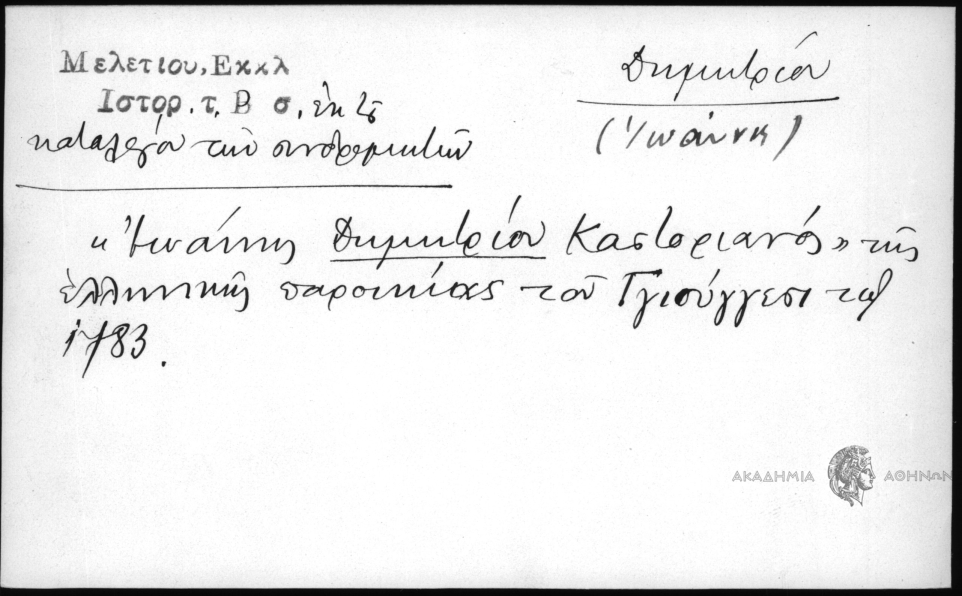 Μελετιου, Εκκλ
Ιστορ. τ. Β σ. ἐκ τȣ͂
καταλόγου τῶν συνδρομητῶν
Δημητρίου
(Ἰωάννη)
« Ἰωάννης Δημητρίου Καστοριανός » τῆς
ἑλληνικῆς παροικίας τοῦ Γγιούγγεσι τῷ
1783.
ΑΚΑΔΗΜΙΑ ΑΘΗΝΩΝ